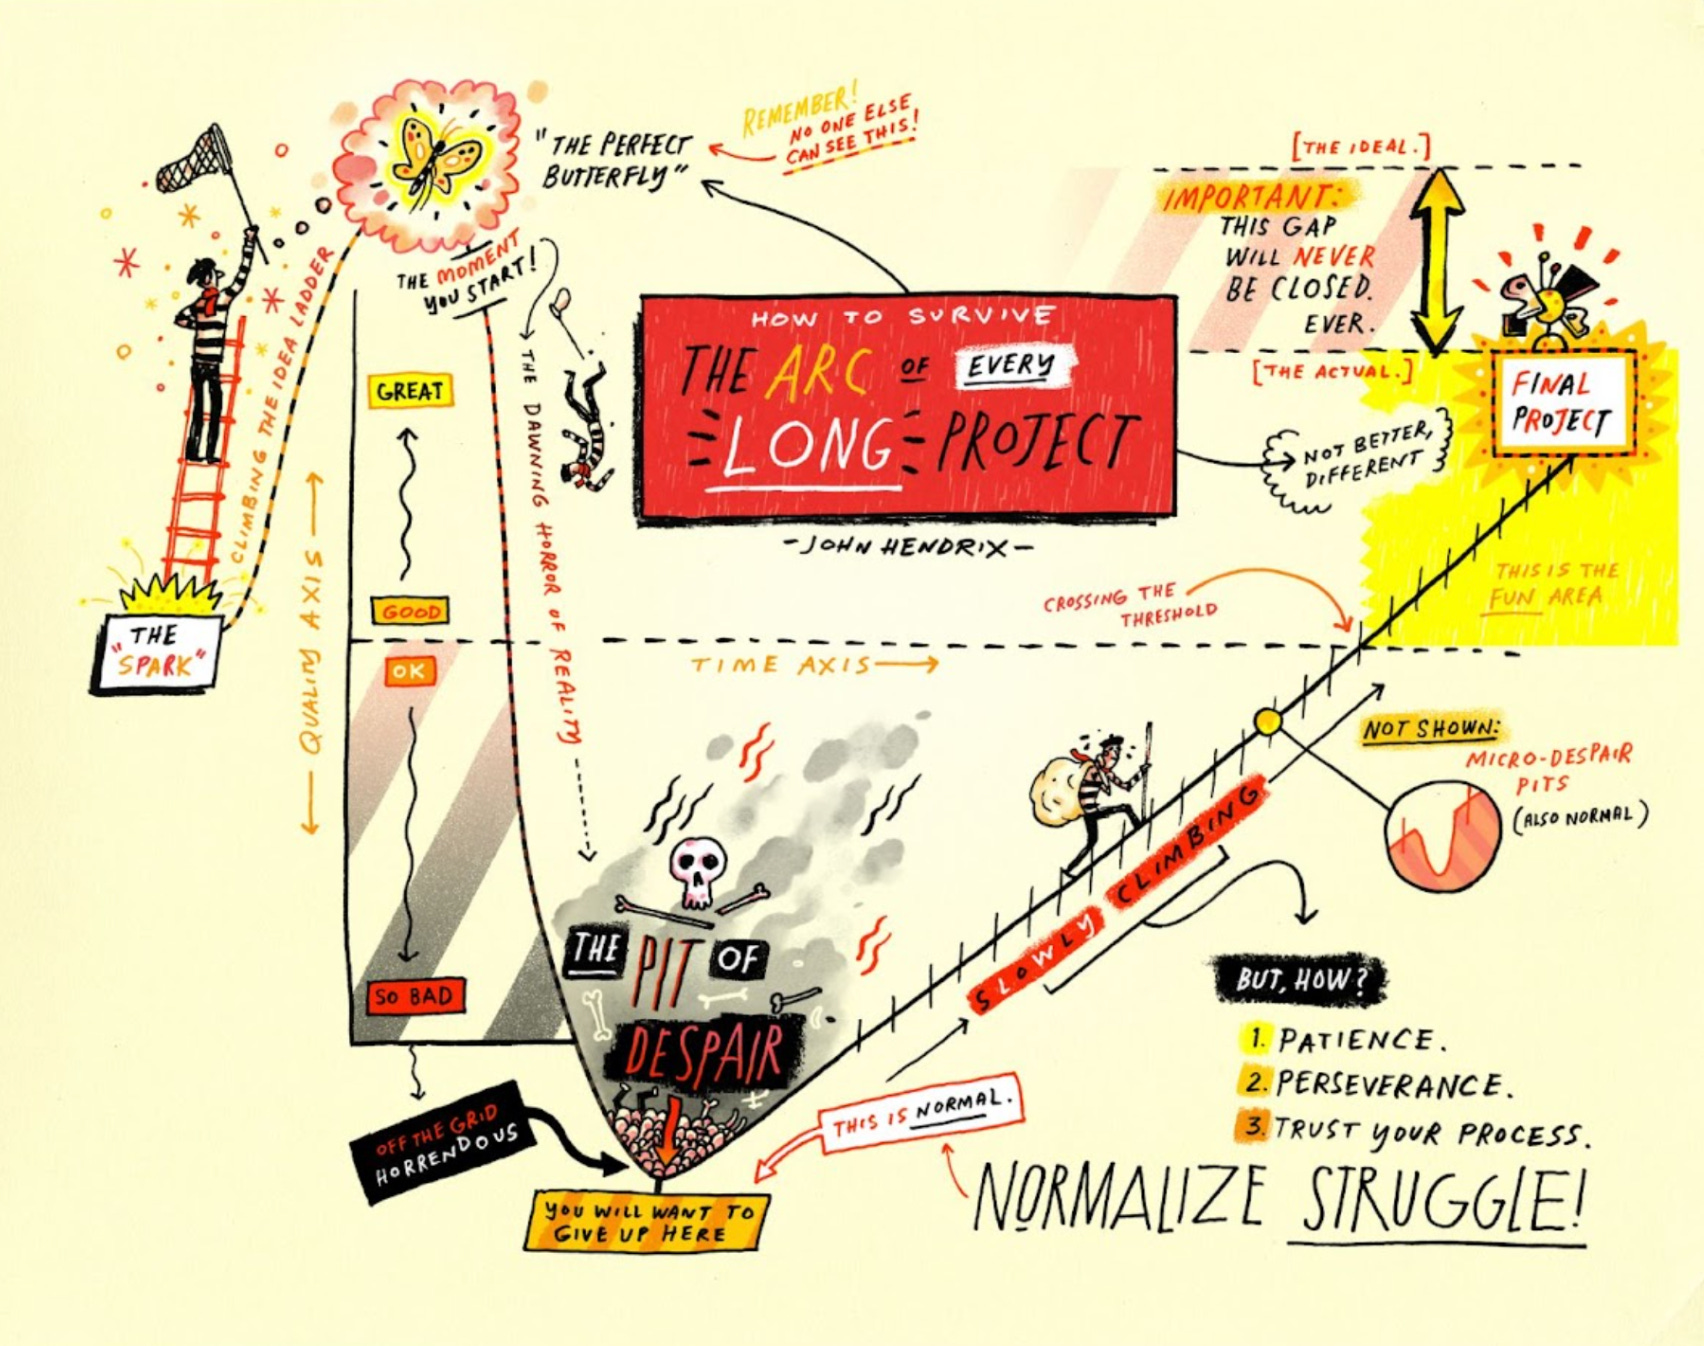 "THE PERFECT
BUTTERFLY"
REMEMBER!
NO ONE ELSE
CAN SEE THIS!
THE MOMENT
YOU START!
CLIMBING THE IDEA LADDER
THE
"SPARK"
← QUALITY AXIS →
GREAT
GOOD
OK
SO BAD
OFF THE GRID
HORRENDOUS
THE DAWNING HORROR OF REALITY
HOW TO SURVIVE
THE ARC OF EVERY
LONG PROJECT
-JOHN HENDRIX-
[THE IDEAL.]
IMPORTANT:
THIS GAP
WILL NEVER
BE CLOSED.
EVER.
[THE ACTUAL.]
NOT BETTER,
DIFFERENT
FINAL
PROJECT
THIS IS THE
FUN AREA
CROSSING THE
THRESHOLD
TIME AXIS →
THE PIT OF
DESPAIR
YOU WILL WANT TO
GIVE UP HERE
THIS IS NORMAL.
SLOWLY CLIMBING
NOT SHOWN:
MICRO-DESPAIR
PITS
(ALSO NORMAL)
BUT, HOW?
1. PATIENCE.
2. PERSEVERANCE.
3. TRUST YOUR PROCESS.
NORMALIZE STRUGGLE!